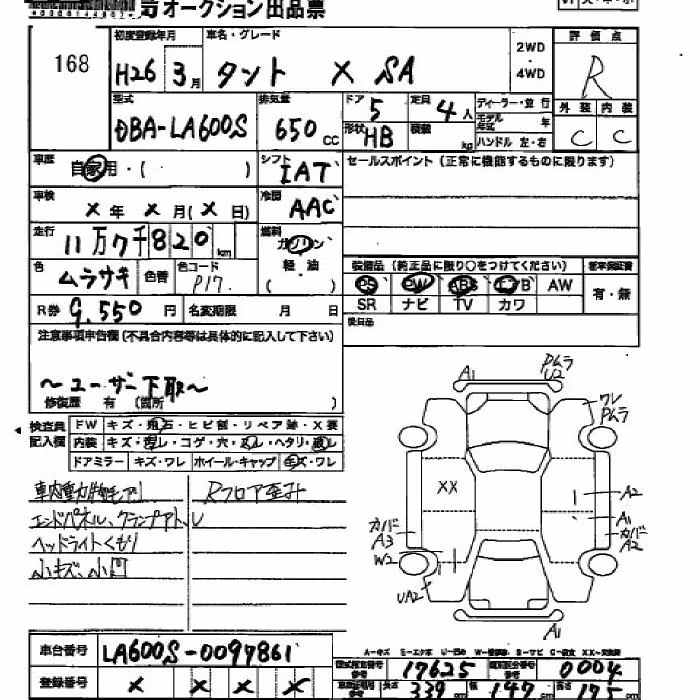 オークション出品票
168
初度登録年月 車名・グレード 2WD ・ 4WD 評価点
H26 3月 タント X SA R
型式 排気量 ドア 5 定員 4人 ディーラー・並行 外装 内装
DBA-LA600S 650cc 形状 HB 積載 kg モデル年式 年 ハンドル 左・右 C C
車歴 自家用・( ) シフト IAT セールスポイント (正常に機能するものに限ります)
車検 X年 X月(X日) 冷房 AAC
走行 11万7千820km 燃料 ガソリン
軽・油
色 ムラサキ 色替 色コード P17. ( )
装備品 (純正品に限り○をつけてください) 新車保証書
PS PW ABS エアB AW 有・無
SR ナビ TV カワ
R券 9,550円 名変期限 月 日
後日品
注意事項申告欄(不具合内容等は具体的に記入して下さい)
〜ユーザー下取〜
修復歴 有 (箇所 )
検査員記入欄 FW キズ・飛石・ヒビ割・リペア跡・X要
内装 キズ・汚レ・コゲ・穴・ヘタリ
ドアミラー キズ・ワレ ホイール・キャップ キズ・ワレ
Rフロア歪み
エンドパネル、クランプアト、
ヘッドライトくもり
小キズ、小凹
A1 PムラU2
ワレ Pムラ
XX
A2
A1
カバーA2
カバーA3
W2
UA2
A1
車台番号 LA600S-0097861
登録番号 X X X X
A-キズ U-凹ミ XX-交換済
型式指定番号 17625 類別区分番号 0004
長さ 339cm 幅 147cm 高さ 175cm